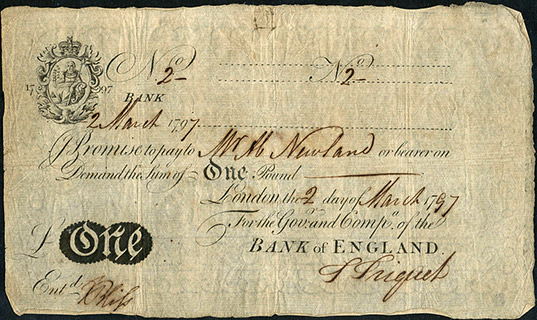 No. 2 No. 2
1797
BANK
2 March 1797
I Promise to pay to Mr. Ab Newland or bearer on
Demand the Sum of One Pound
London the 2 day of March 1797
For the Govr. and Compa. of the
BANK of ENGLAND.
£ One
T Triquet
Entd.